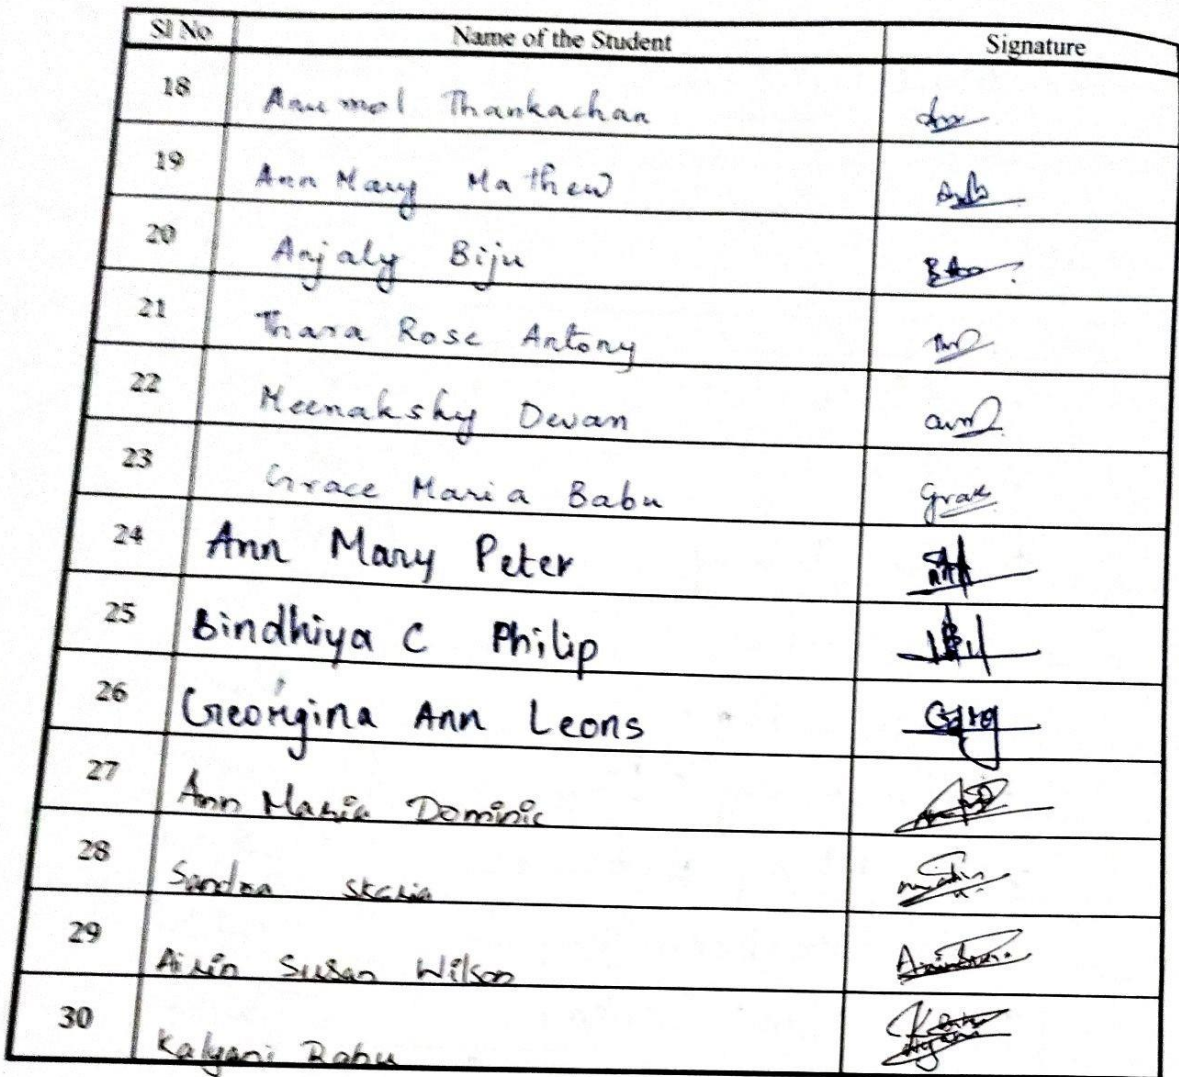 Sl No Name of the Student Signature
18 Anu mol Thankachan
19 Ann Mary Mathew
20 Anjaly Biju
21 Thara Rose Antony
22 Meenakshy Devan
23 Grace Maria Babu Grace
24 Ann Mary Peter
25 Bindhiya C Philip
26 Georgina Ann Leons
27 Ann Maria Dominic
28 Sandra Skaria
29 Airin Susan Wilson
30 Kalyani Babu